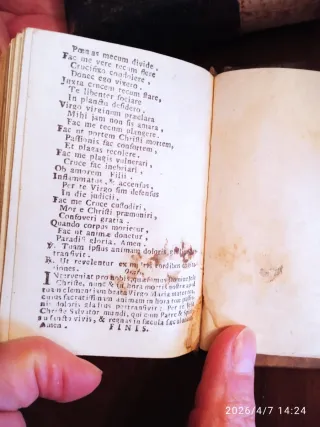 Pœnas mecum divide.
Fac me vere tecum flere
Crucifixo condolere,
Donec ego vixero.
Juxta crucem tecum stare,
Te libenter sociare
In planctu desidero.
Virgo virginum præclara
Mihi jam non sis amara,
Fac me tecum plangere.
Fac ut portem Christi mortem,
Passionis fac consortem,
Et plagas recolere.
Fac me plagis vulnerari,
Cruce fac inebriari,
Ob amorem Filii.
Inflammatus, & accensus,
Per te Virgo sim defensus
In die judicii.
Fac me Cruce custodiri,
Morte Christi præmuniri,
Confoveri gratia.
Quando corpus morietur,
Fac ut animæ donetur
Paradisi gloria. Amen.
℣. Tuam ipsius animam doloris
transivit.
℟. Ut revelentur ex multis cordibus
iones.
Interveniat pro nobis, quæsumus
Christe, nunc & in hora mortis nostræ apud
tuam clementiam beata Virgo Maria mater tua,
cujus sacratissimam animam in hora tuæ
doloris gladius pertransivit: Per te
Christe Salvator mundi, qui cum Patre &
Sancto vivis, & regnas in sæcula sæculorum
Amen. FINIS.
2026/4/7 14:24